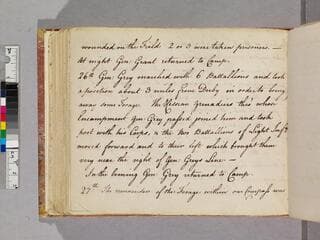 wounded on the Field 2 or 3 were taken prisoners. —
At night Gen: Grant returned to Camp.
26th Gen: Grey marched with 6 Battallions and took
a position about 3 miles from Derby in order to bring
away some Forage. The Hessian grenadiers thro whose
Encampment Gen: Grey passed joined him and took
post with his Corps, & the two Battallions of Light Inf.y
moved forward and to their left which brought them
very near the right of Gen: Greys Line —
In the Evening Gen: Grey returned to Camp.
27th The remainder of the Forage within our Compass was